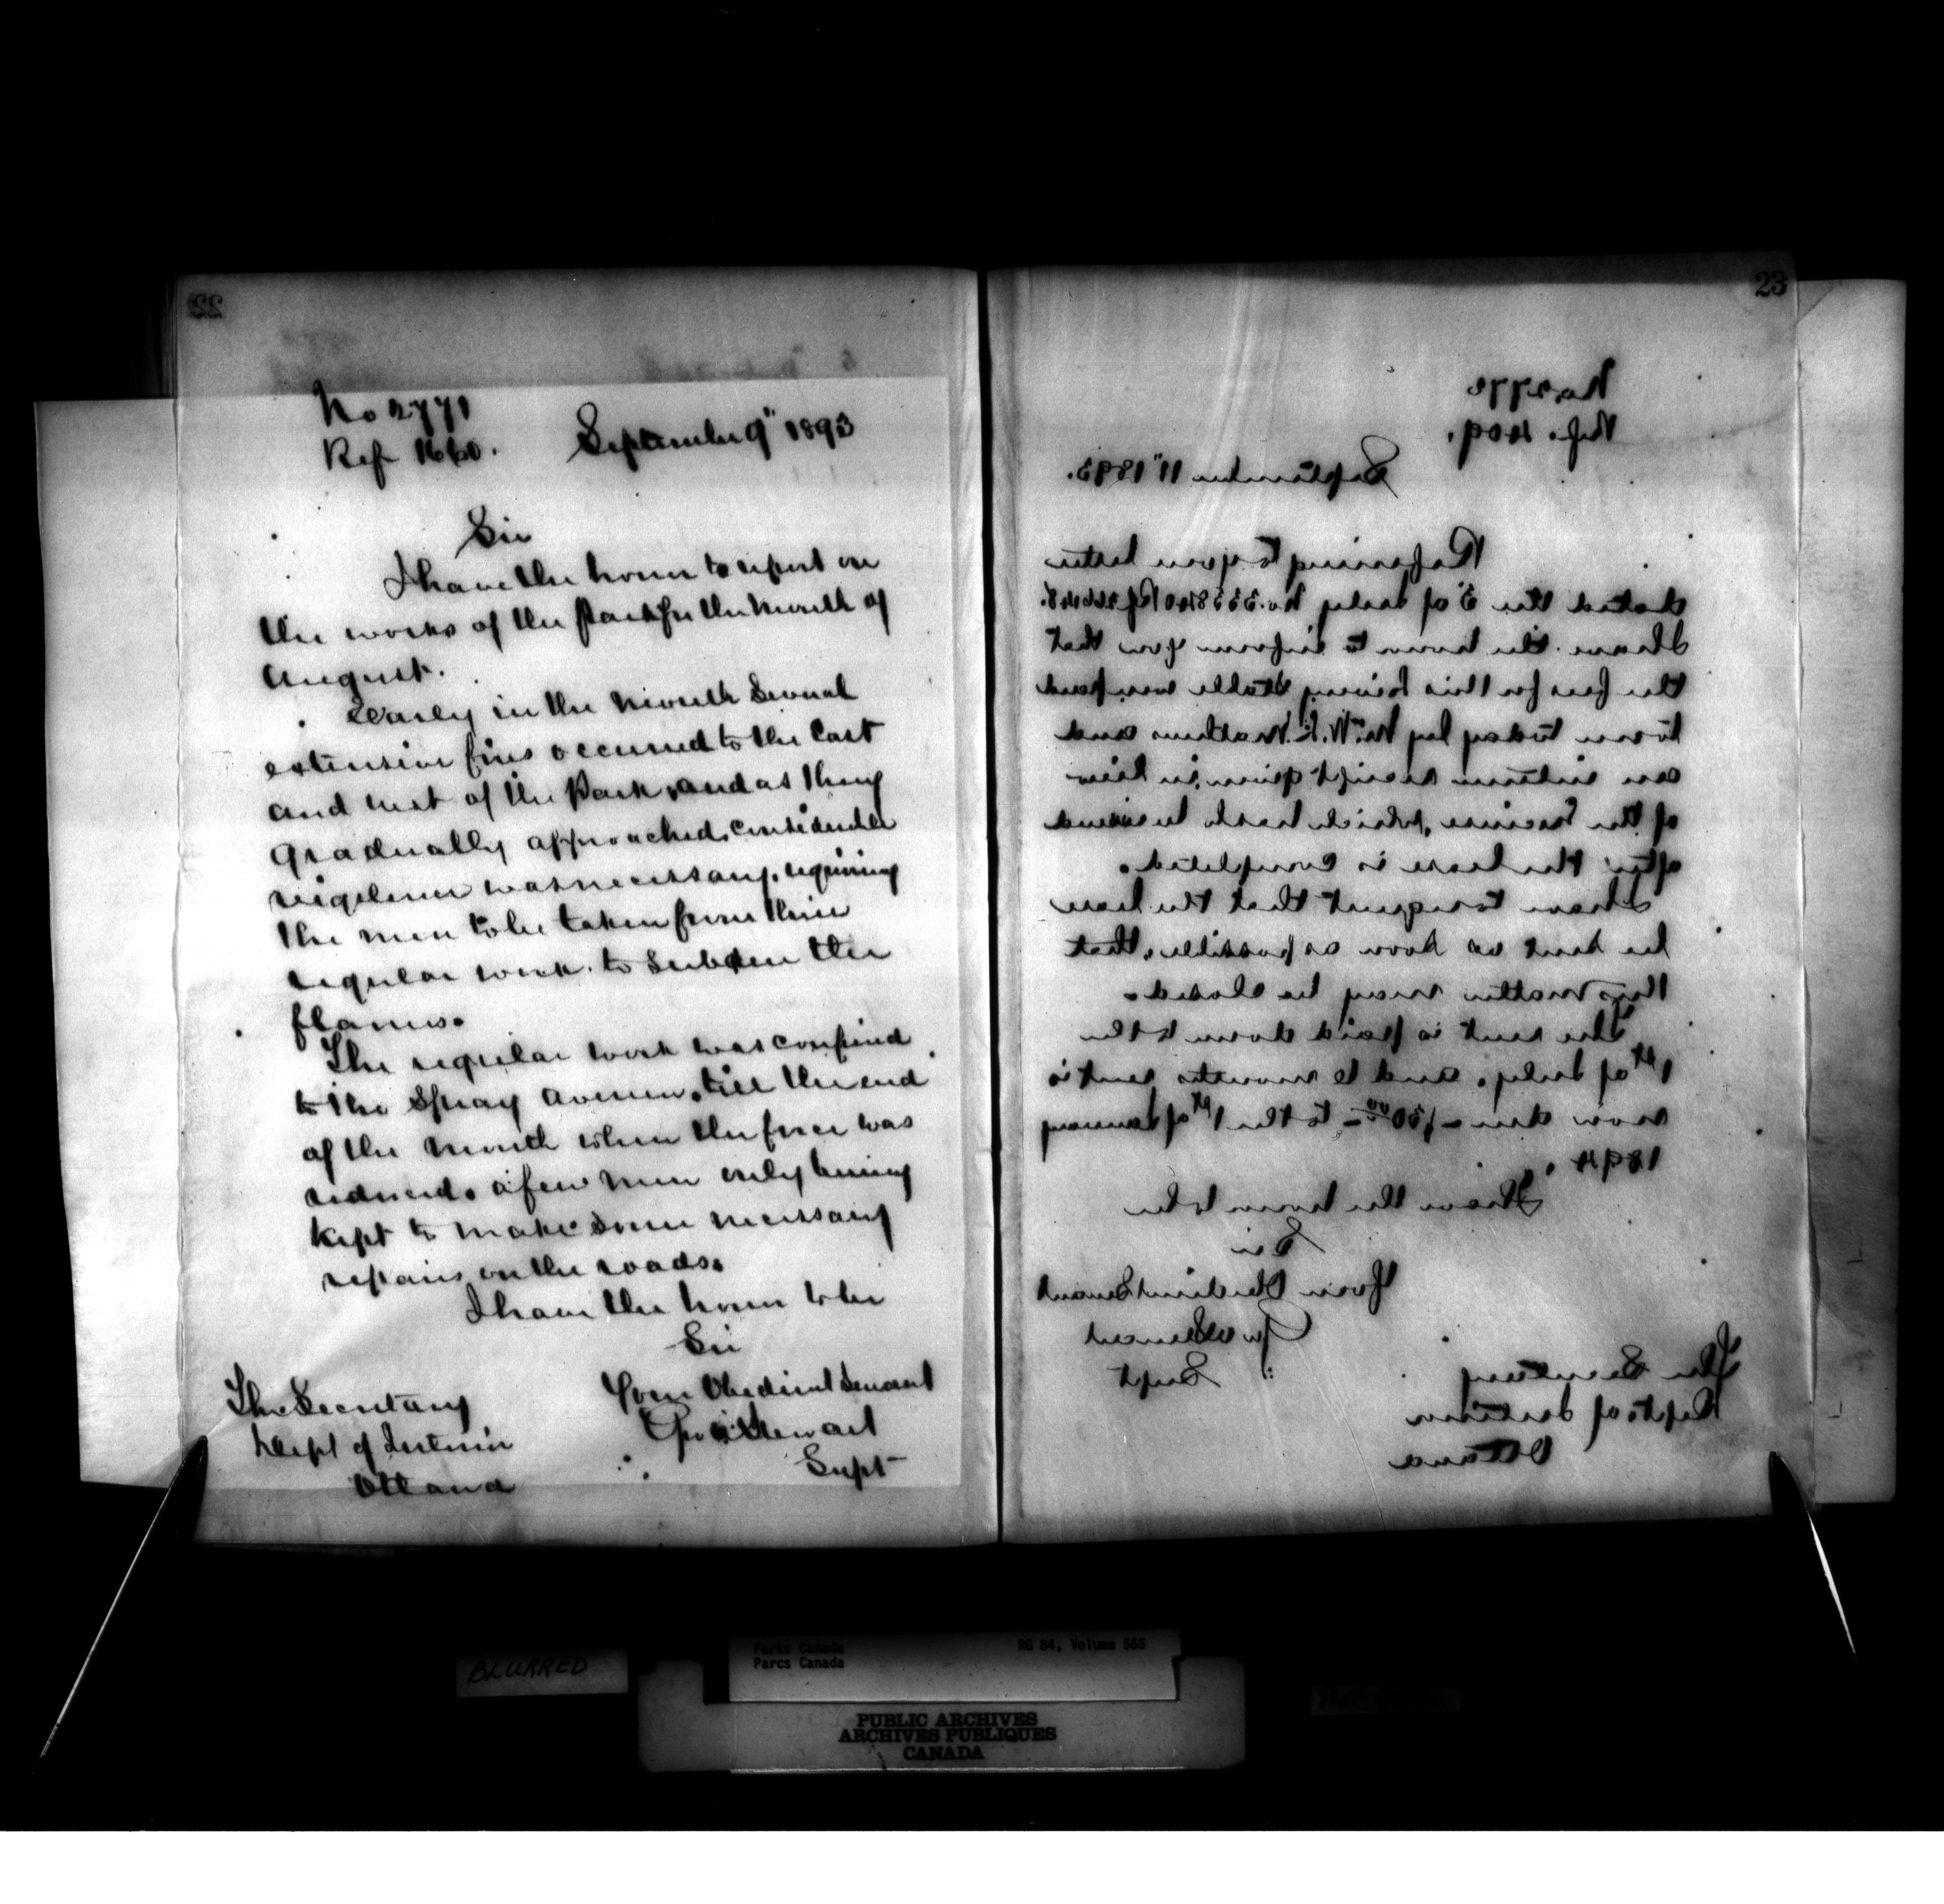 22
No 2771
Ref 1660. September 9" 1893
Sir
I have the honor to report on
the works of the Park for the month of
August.
Early in the month several
extensive fires occurred to the East
and west of the Park, and as they
gradually approached, considerable
vigilance was necessary, requiring
the men to be taken from their
regular work to subdue the
flames.
The regular work was confined
to the Spray Avenue, till the end
of the month when the force was
reduced, a few men only being
kept to make some necessary
repairs on the roads.
I have the honor to be
Sir
Your Obedient Servant
Geo A Stewart
Supt
The Secretary
Dept of Interior
Ottawa
23
September 11" 1893.
Referring to your letter
dated the 5 of July
I have the honor to inform you that
the fees for this livery stable were paid
to me today by Mr. and
an interim receipt given in lieu
of the license, which has to be issued
after the lease is completed.
I have to request that the lease
be sent as soon as possible, that
this matter may be closed.
The rent is paid down to the
1st of July, and 6 months rent is
now due - to the 1st of January
1894.
I have the honor to be
Sir
Your Obedient Servant
Geo A Stewart
Supt
The Secretary
Dept. of Interior
Ottawa
BLURRED
Parks Canada
Parcs Canada
RG 84, Volume 565
PUBLIC ARCHIVES
ARCHIVES PUBLIQUES
CANADA